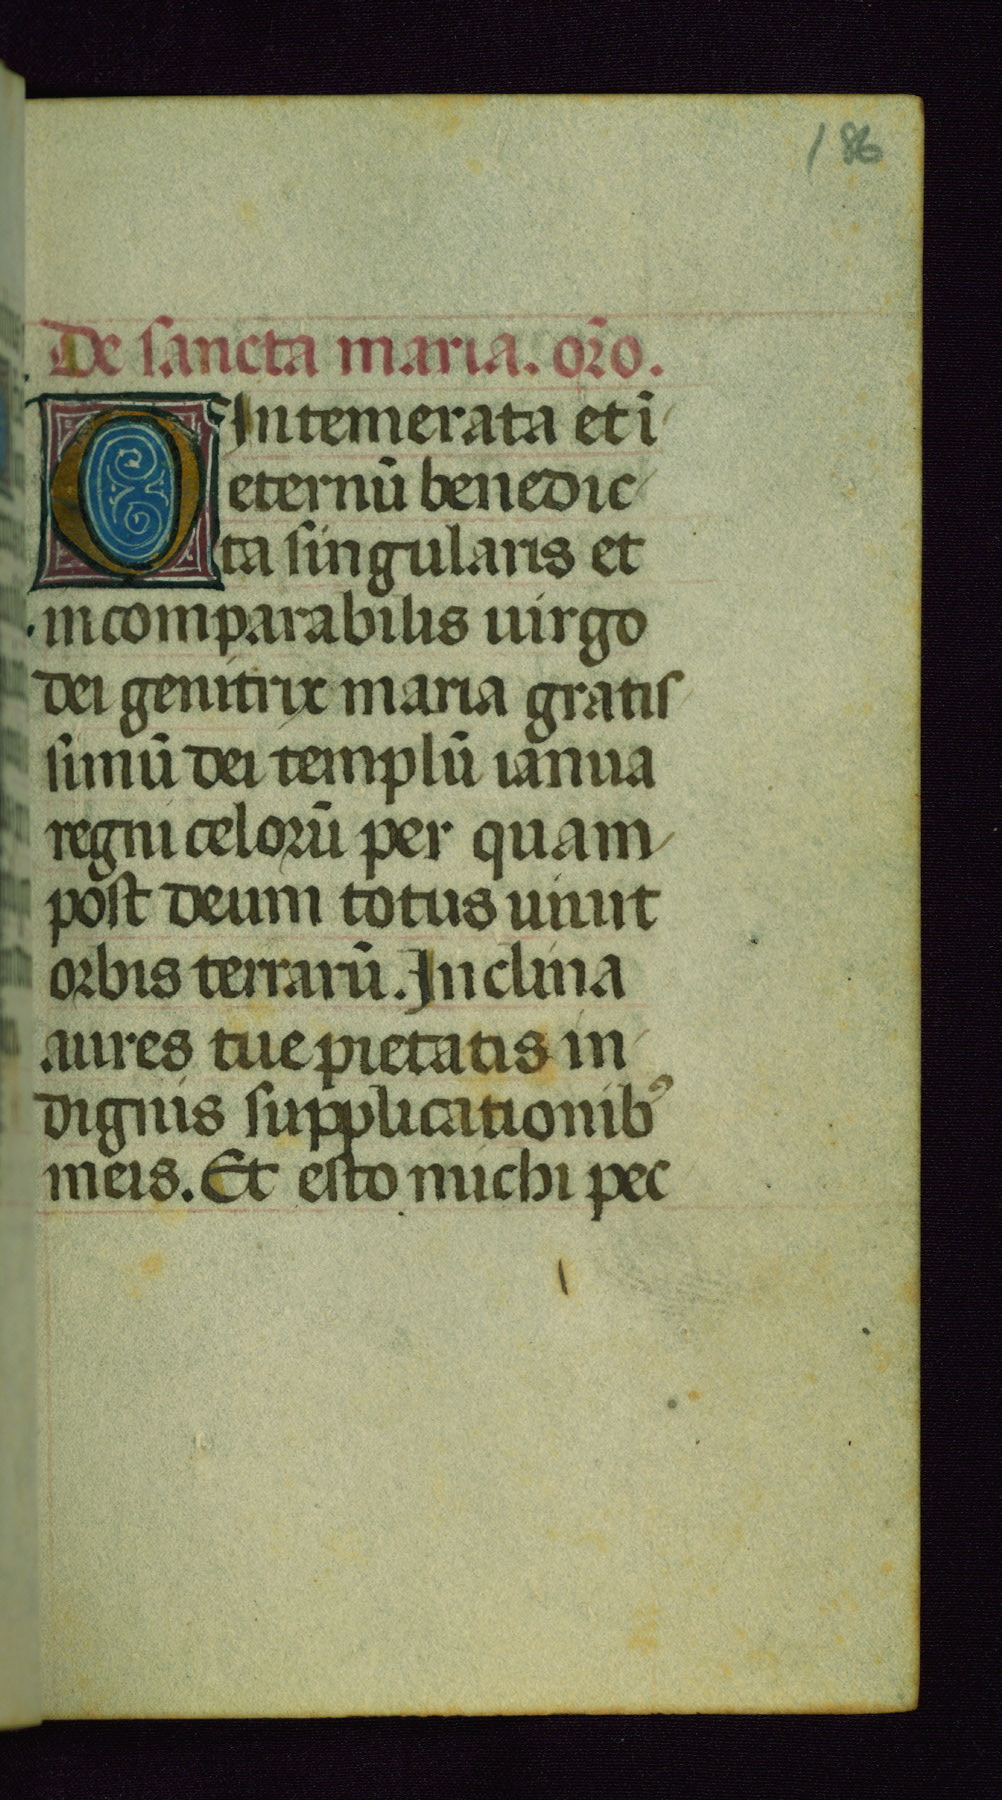 186
De sancta maria. oro̅.
O Intemerata et i̅
eternu̅ benedic
ta singularis et
incomparabilis uirgo
dei genitrix maria gratis
simu̅ dei templu̅ ianua
regni celoru̅ per quam
post deum totus uiuit
orbis terraru̅. Inclina
aures tue pietatis in
dignis supplicationibꝰ
meis. Et esto michi pec